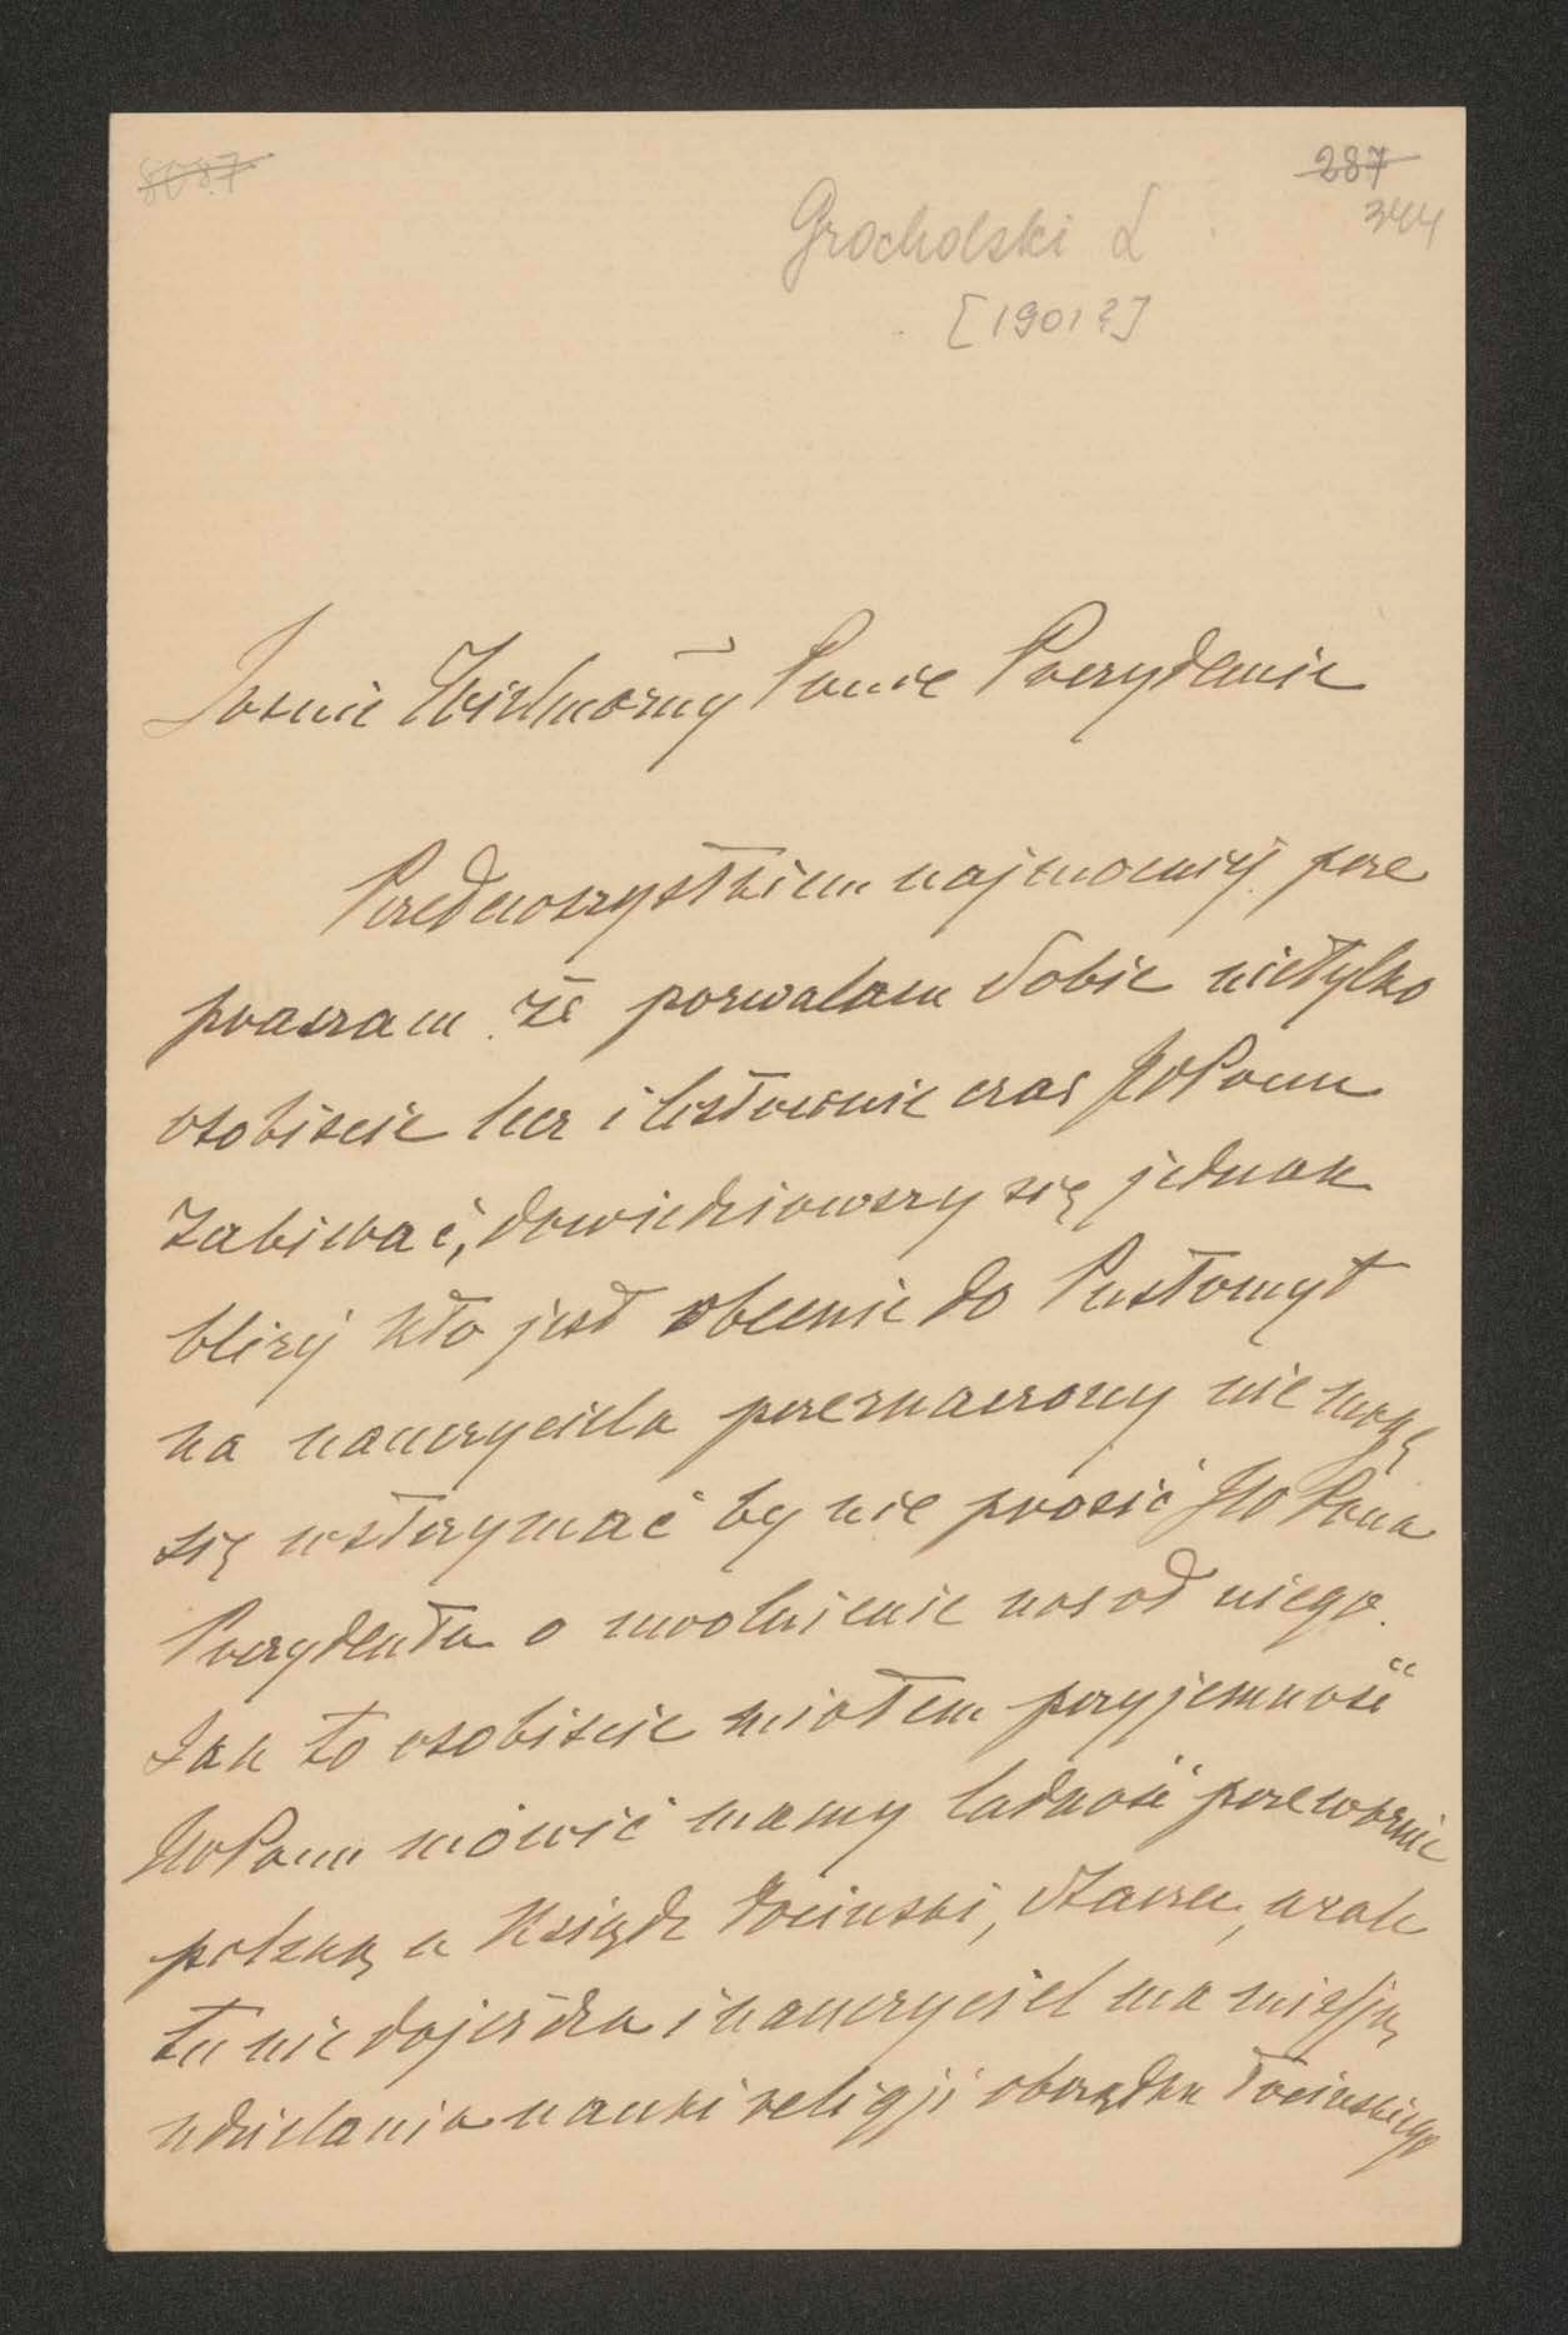 287
344
Grocholski L
[1901?]
Jasnie Wielmożny Panie Prezydencie
Przedewszystkiem najmocniej prze
praszam że pozwalam sobie nietylko
osobiscie lecz i listownie czas JWPanu
zabierać, dowiedziawszy się jednak
bliżej kto jest obecnie do Pustomyt
na nauczyciela przeznaczony nie mogę
się wstrzymać by nie prosić JWPana
Prezydenta o uwolnienie nas od niego.
Jak to osobiscie miałem przyjemność
JWPanu mówić mamy ludność przeważnie
polską a Ksiądz łaciński, staruszek
tu nie dojeżdża i nauczyciel ma misję
udzielania nauki religji obrządku łacińskiego